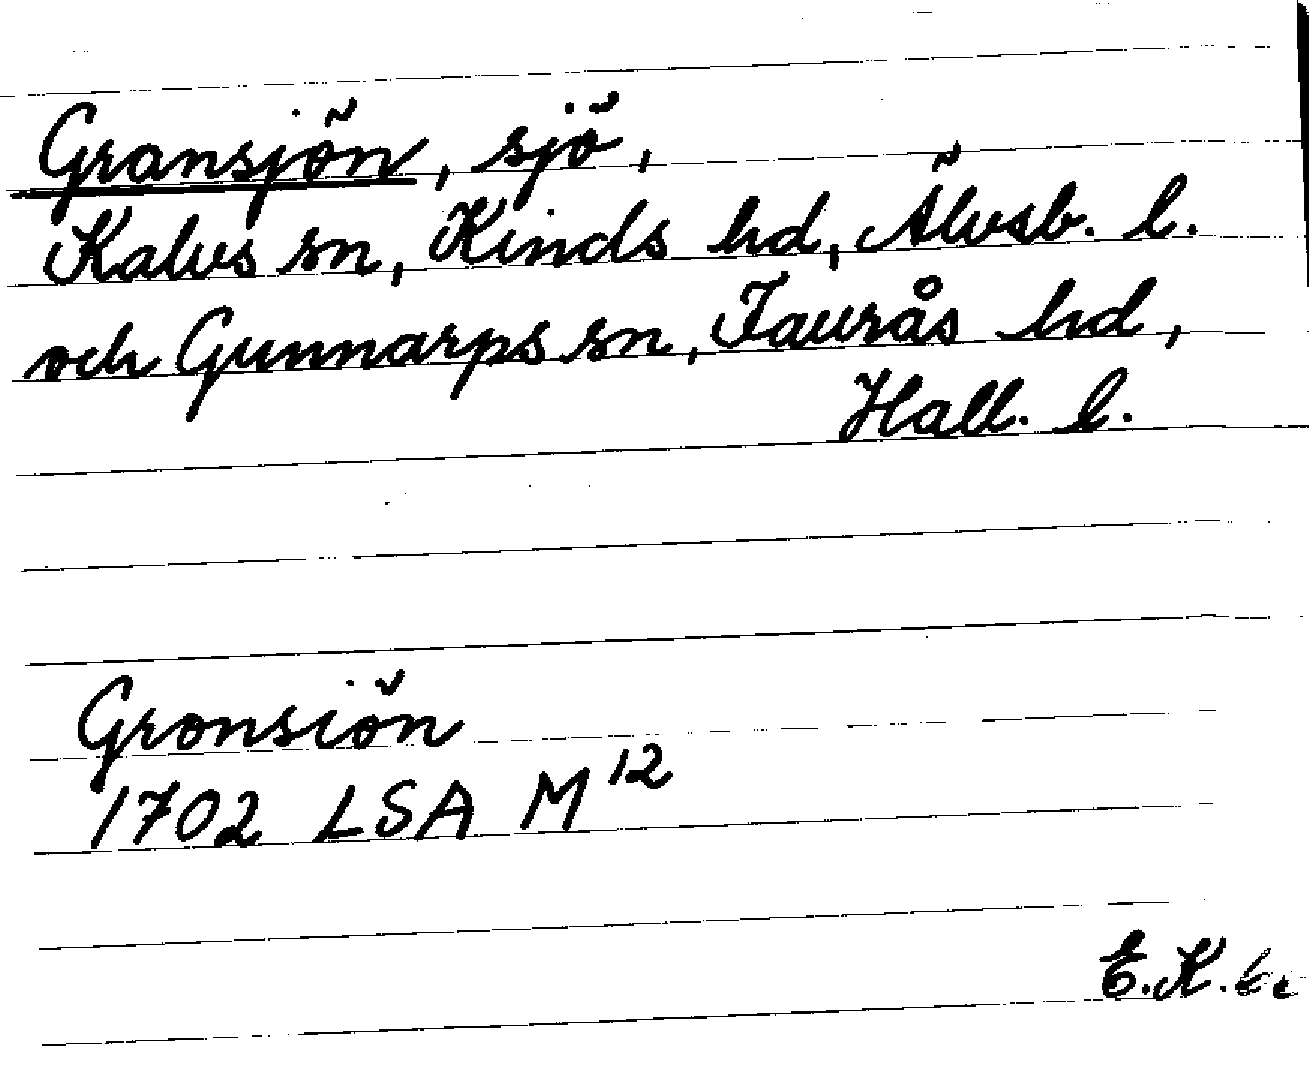 Gransjön, sjö,
Kalvs sn, Kinds hd, Älvsb. l.
och Gunnarps sn, Faurås hd,
Hall. l.
Gronsiön
1702 LSA M¹²
E.K.